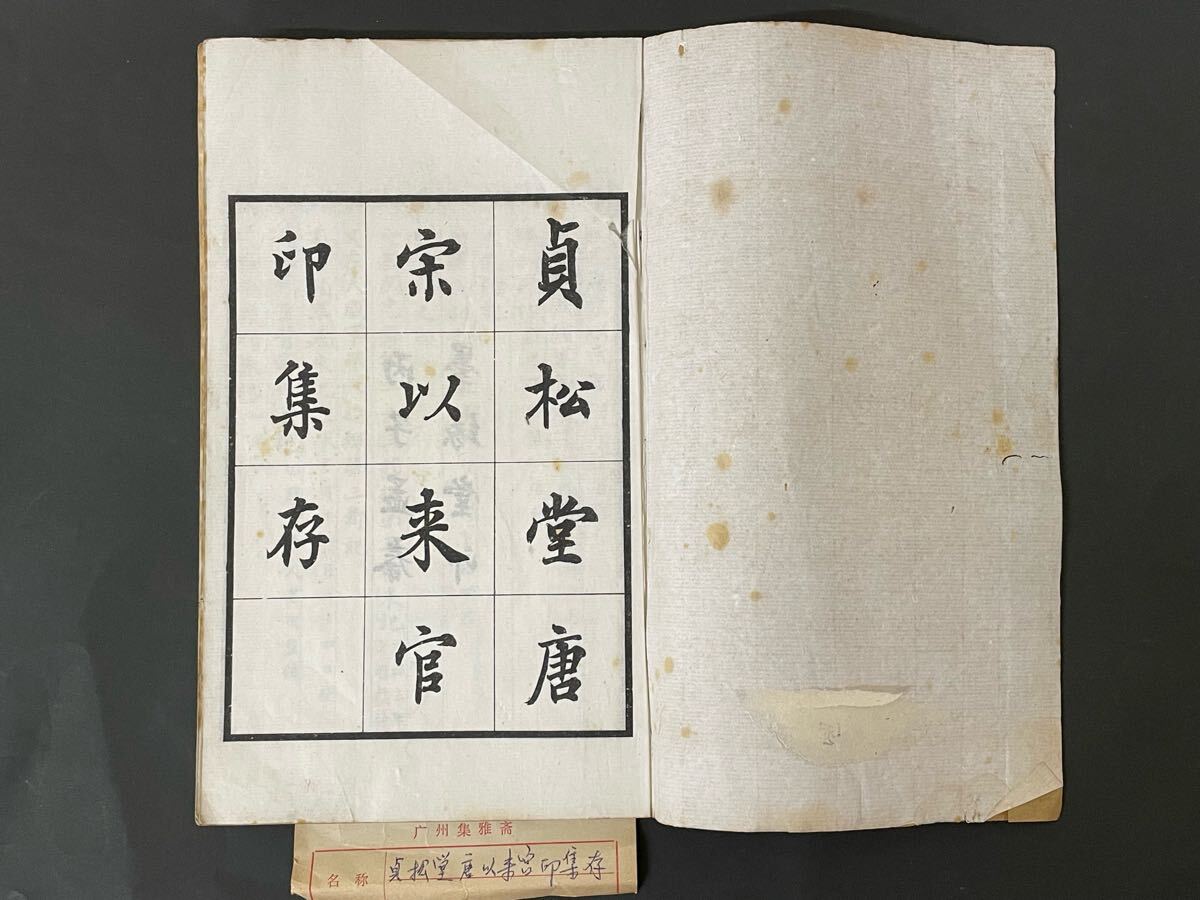 貞松堂唐
宋以来官
印集存
广州集雅斋
名称 贞松堂唐以来官印集存